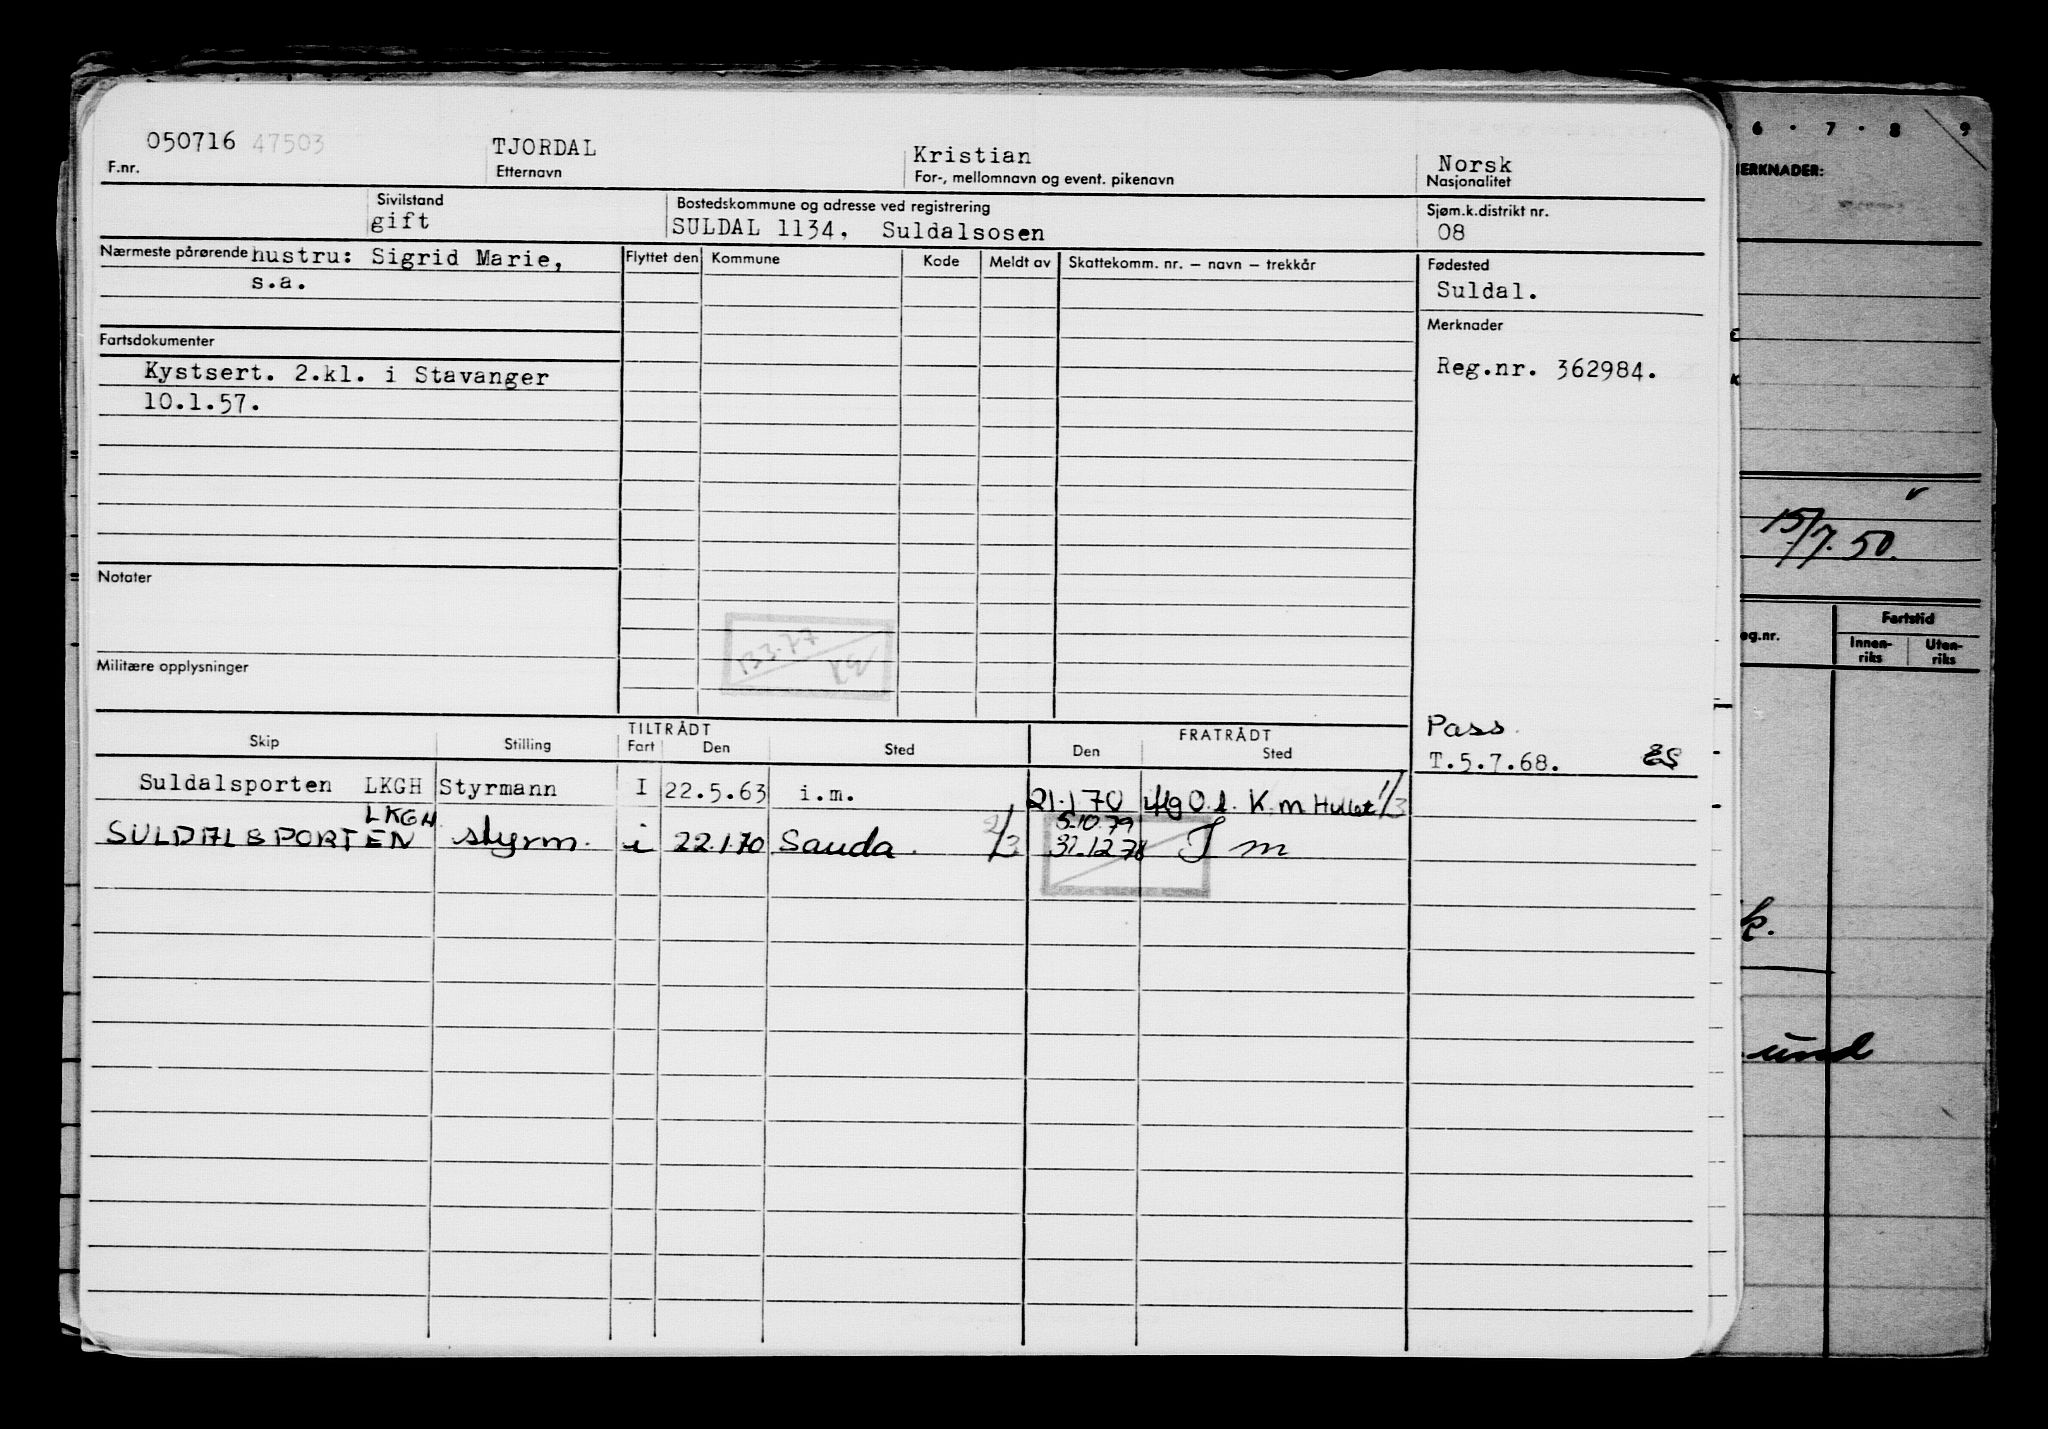 050716 47503 TJORDAL Kristian Norsk
F.nr. Etternavn For-, mellomnavn og event. pikenavn Nasjonalitet
Sivilstand Bostedskommune og adresse ved registrering Sjøm.k.distrikt nr.
gift SULDAL 1134. Suldalsosen 08
Nærmeste pårørende hustru: Sigrid Marie, Flyttet den Kommune Kode Meldt av Skattekomm. nr. – navn – trekkår Fødested
s.a. Suldal.
Fartsdokumenter Merknader
Kystsert. 2.kl. i Stavanger Reg.nr. 362984.
10.1.57.
Notater
Militære opplysninger
Pass.
T.5.7.68. ES
TILTRÅDT FRATRÅDT
Skip Stilling Fart Den Sted Den Sted
Suldalsporten LKGH Styrmann I 22.5.63 i.m. 21.1 70 iflg O.l. K.m 1/3
LKGH 5.10.79
SULDALSPORTEN styrm. i 22.1.70 Sauda. 2/3 31.12 78 I m
6 7 8 9
MERKNADER:
15/7.50.
Fartstid
eg.nr. Innen-riks Uten-riks
k.
und